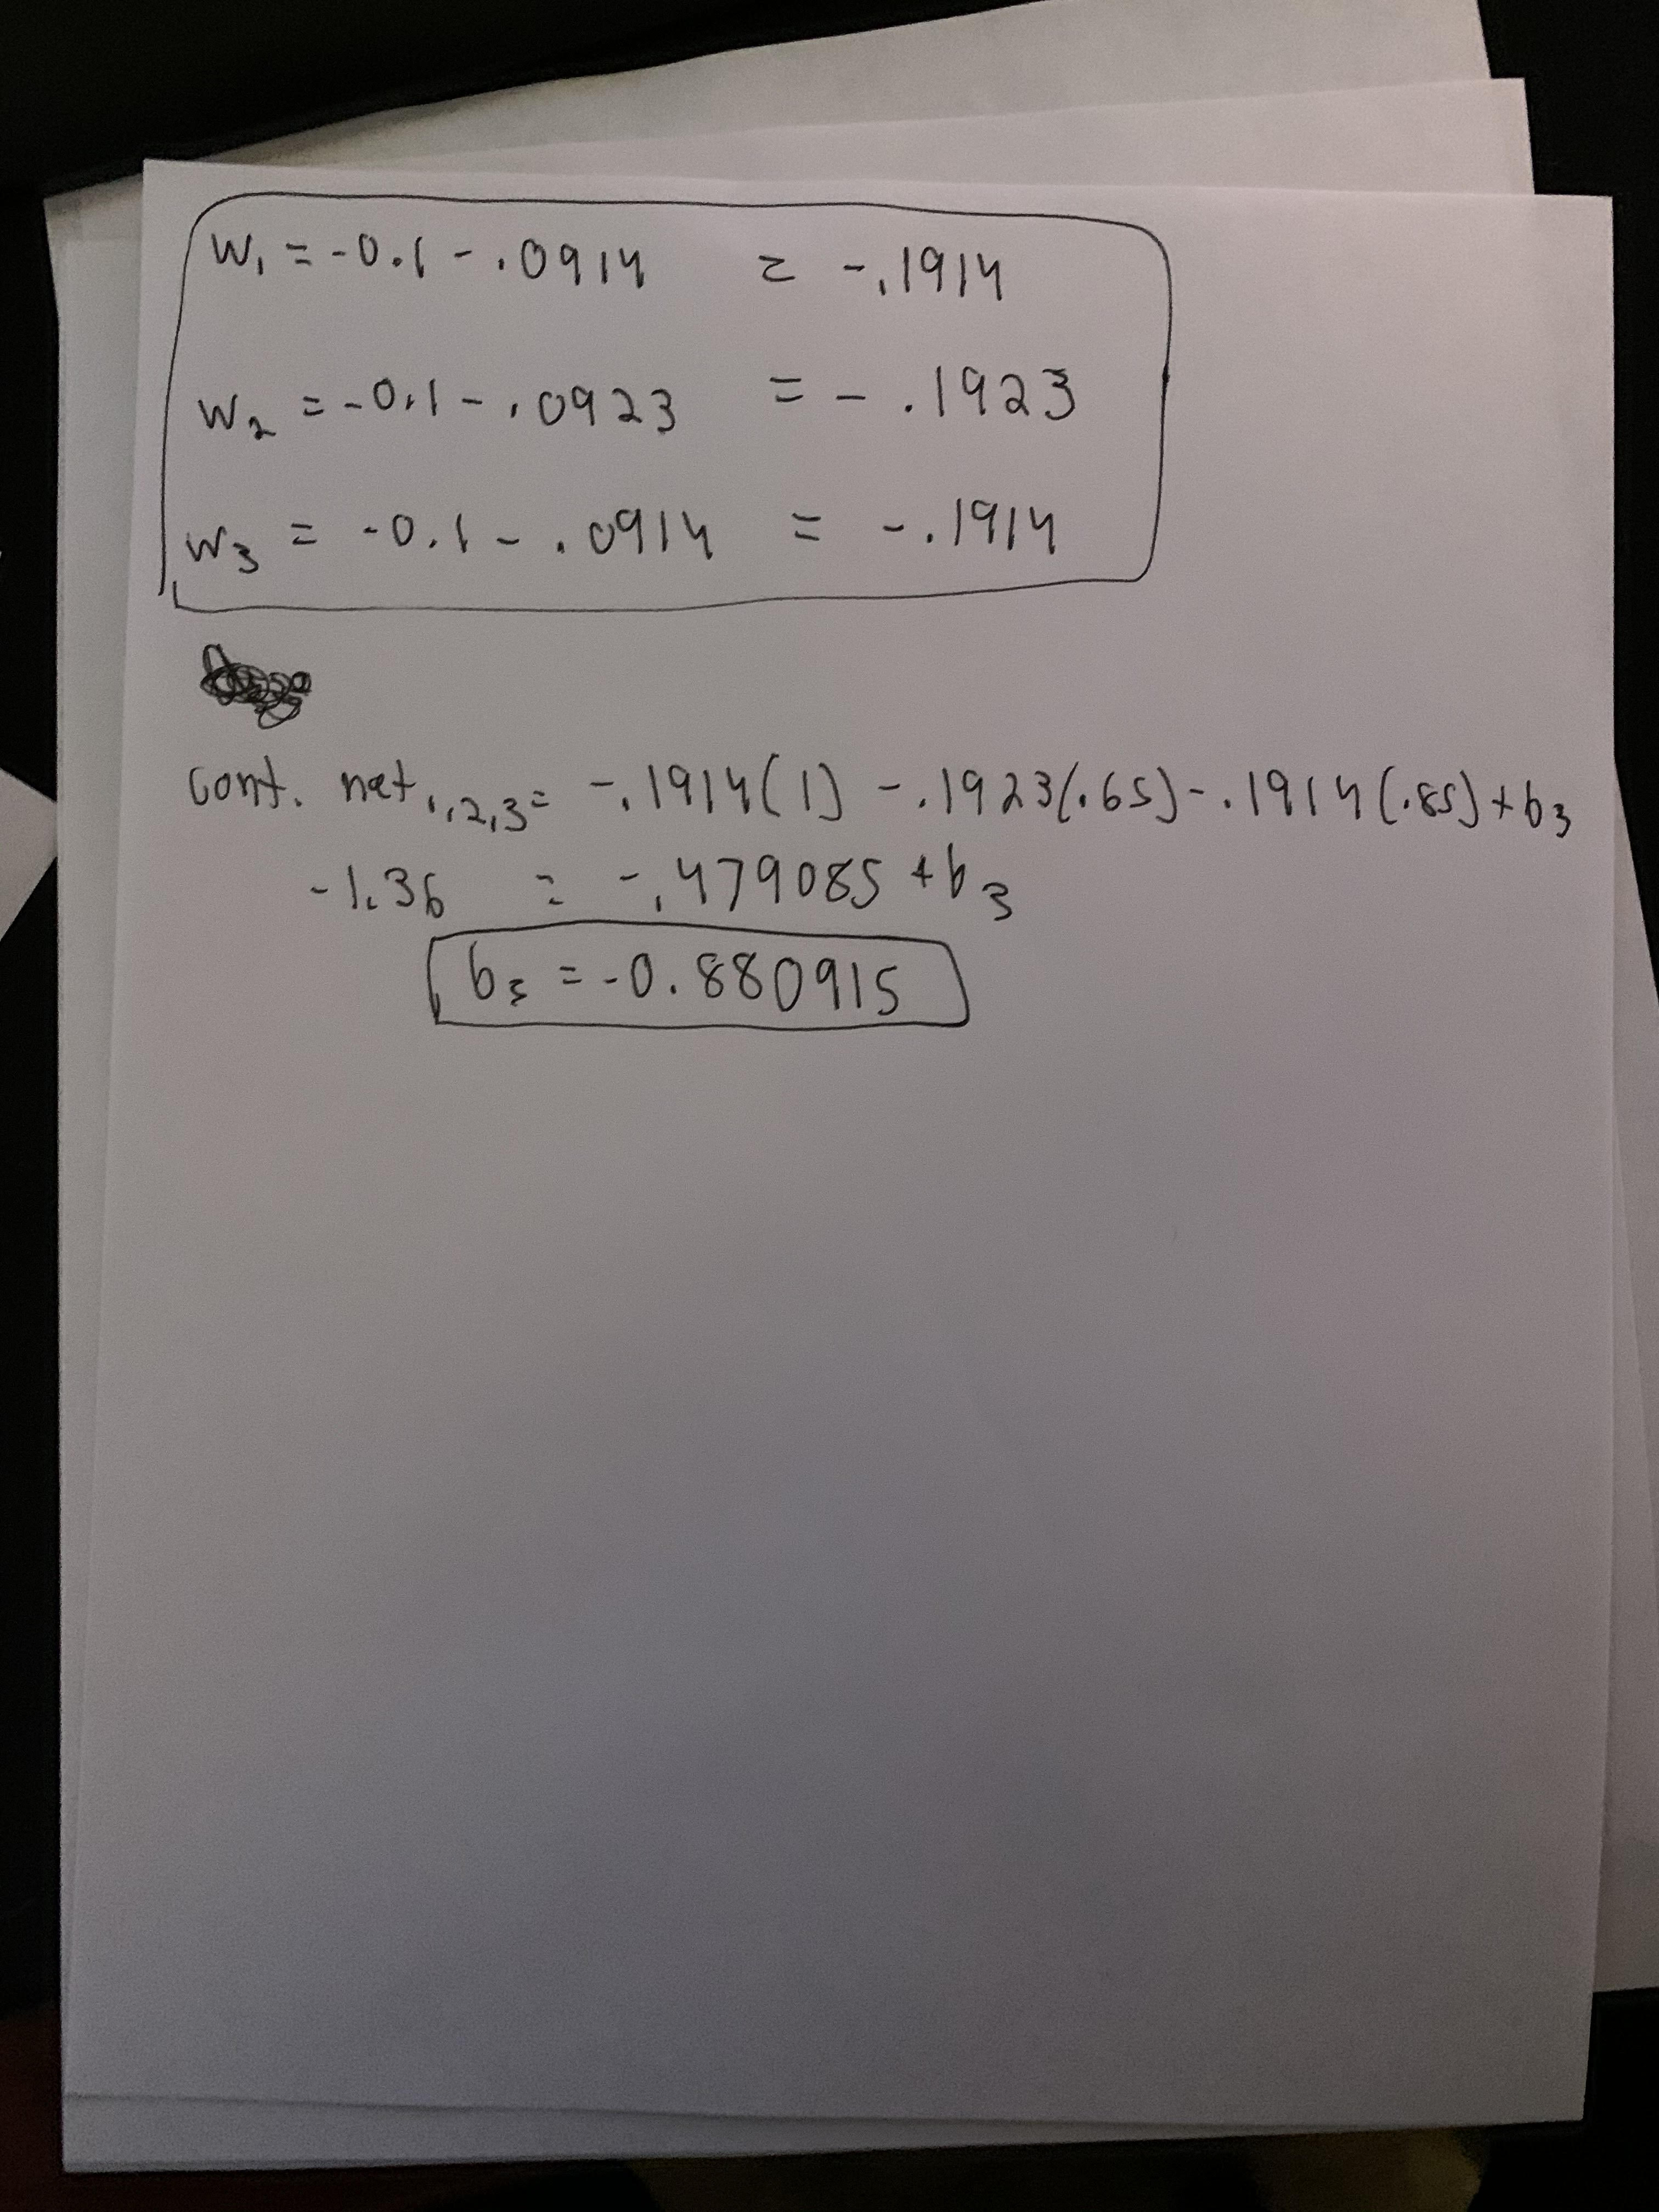 w₁ = -0.1 - .0914 = -.1914
w₂ = -0.1 - .0923 = -.1923
w₃ = -0.1 - .0914 = -.1914
cont. net₁,₂,₃ = -.1914(1) - .1923(.65) - .1914(.85) + b₃
-1.36 = -.479085 + b₃
b₃ = -0.880915